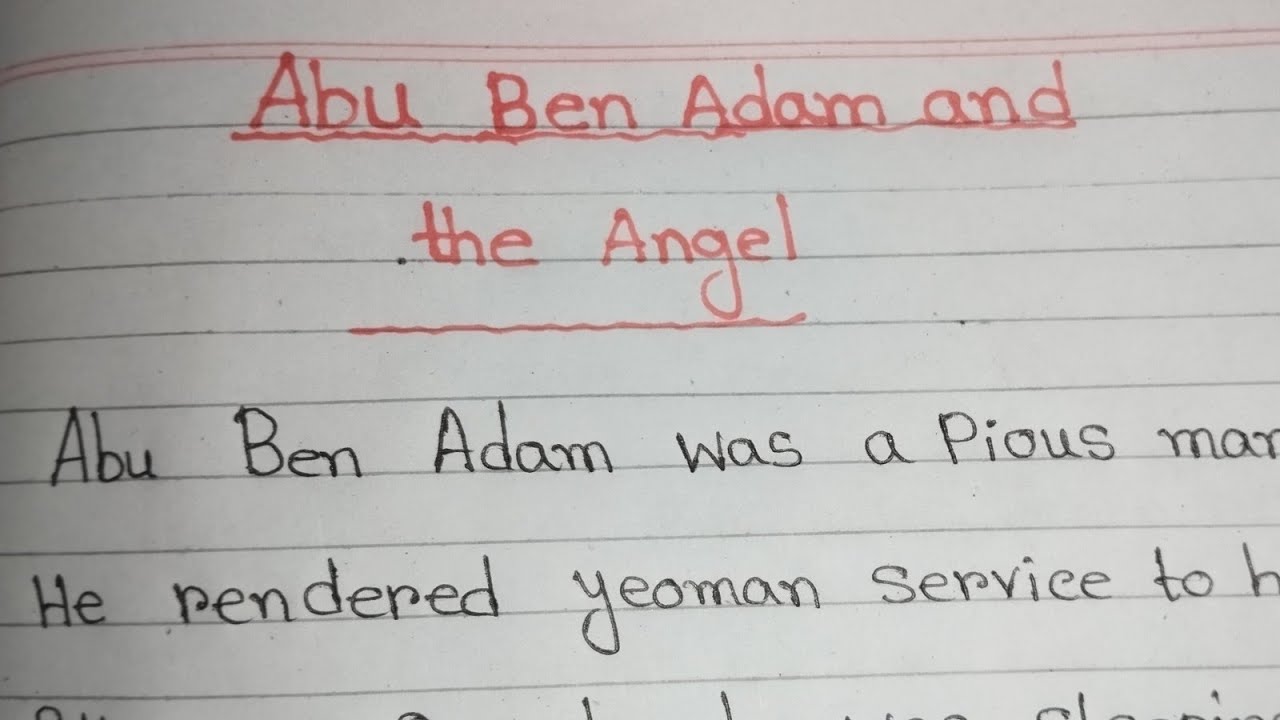 Abu Ben Adam and
the Angel
Abu Ben Adam was a Pious man
He rendered yeoman service to h